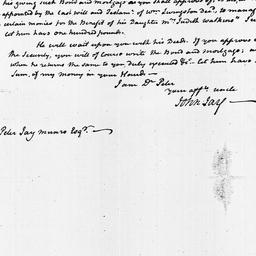 his giving such Bond and mortgage as you shall approve of,
appointed by the last will and Testamt. of Wm. Livingston Decd. to manage
certain monies for the Benefit of his Daughter Mrs. Judith Watkins
him have one hundred pounds.
He will wait upon you with his Deeds. If you approve of
the Security, you will of course write the Bond and mortgage; and
when he returns the same to you, duly executed &c. let him have
Sum, of my money in your Hands —
I am Dr. Peter
your afft. uncle
John Jay —
Peter Jay Munro Esqr. —